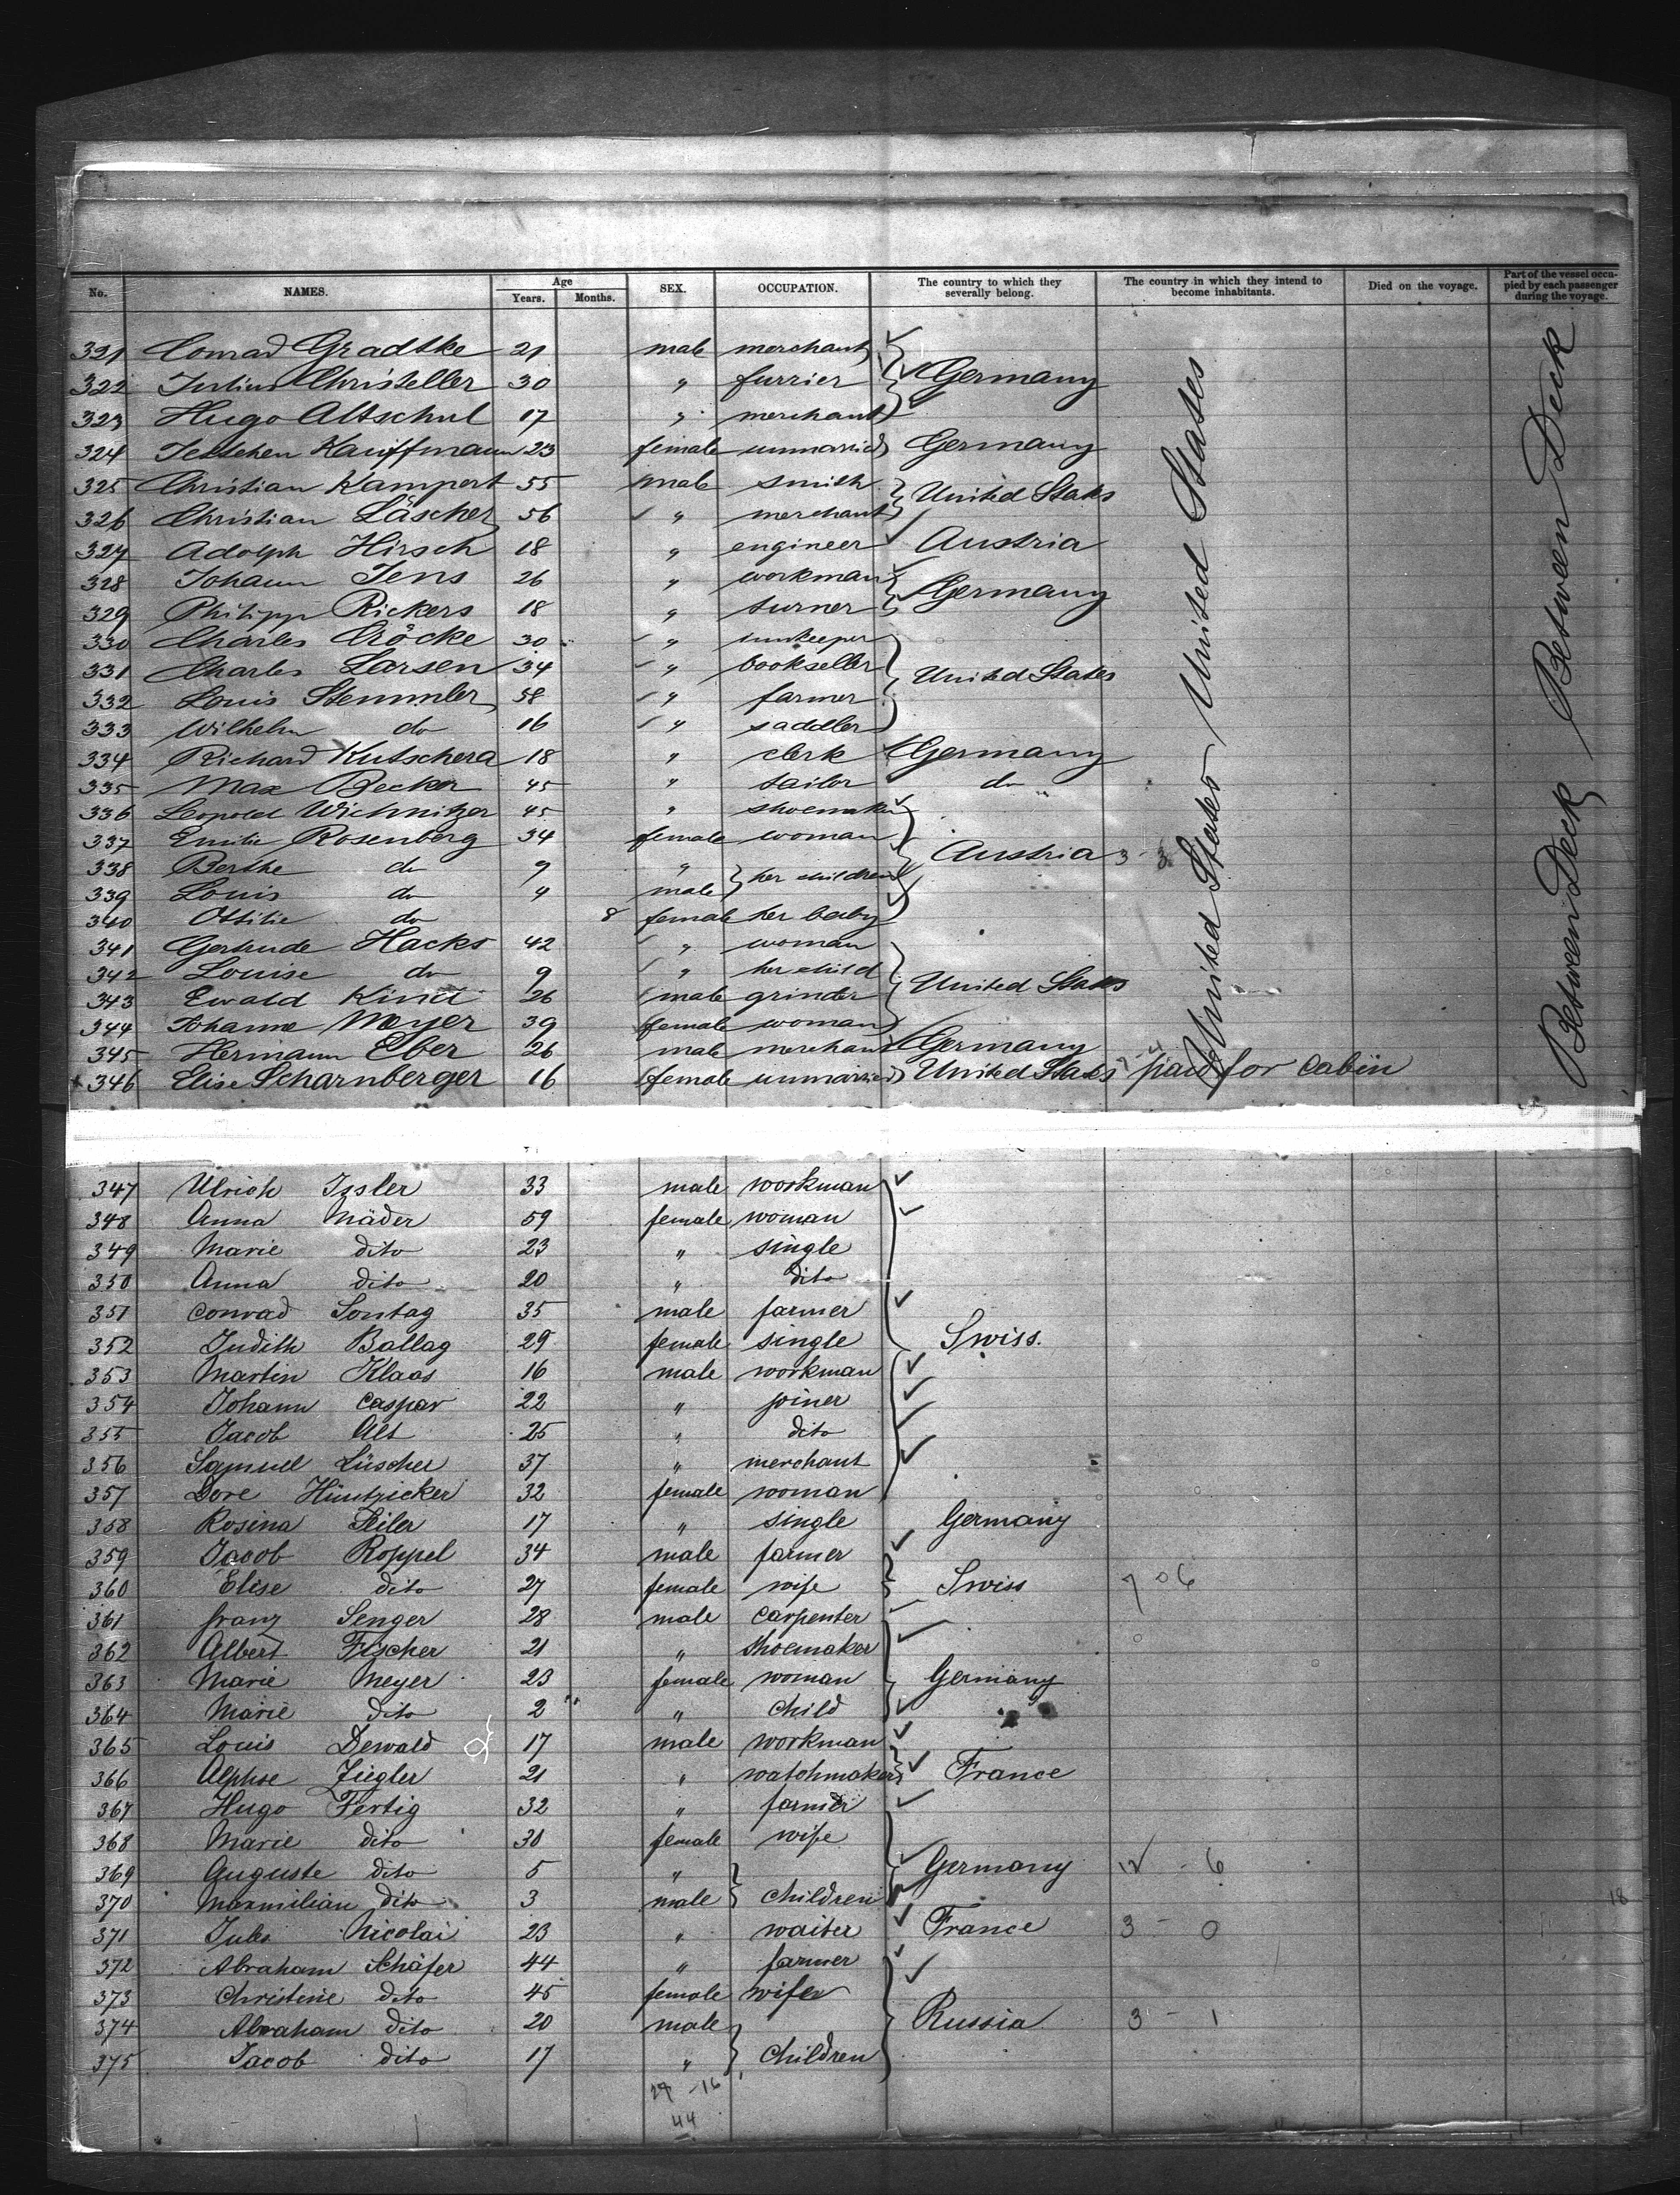 No. NAMES. Age Years. Months. SEX. OCCUPATION. The country to which they severally belong. The country in which they intend to become inhabitants. Died on the voyage. Part of the vessel occupied by each passenger during the voyage.
321 Conrad Gradtke 21 male merchant
322 Julius Christeller 30 " furrier Germany
323 Hugo Altschul 17 " merchant
324 Jettchen Kauffmann 23 female unmarried Germany
325 Christian Kampert 55 male smith United States
326 Christian Läscher 56 " merchant
327 Adolph Hirsch 18 " engineer Austria
328 Johann Jens 26 " workman Germany
329 Philipp Rickers 18 " turner
330 Charles Cröcke 30 " innkeeper
331 Charles Larsen 34 " bookseller United States
332 Louis Stemmler 58 " farmer
333 Wilhelm do 16 " saddler
334 Richard Kutschera 18 " clerk Germany
335 Max Becker 45 " tailor do
336 Leopold Wichnitzer 45 " shoemaker
337 Emilie Rosenberg 34 female woman Austria 3 - 3
338 Berthe do 9 " her children
339 Louis do 4 male
340 Ottilie do 8 female her baby
341 Gertrude Hacks 42 " woman
342 Louise do 9 " her child United States
343 Ewald Kind 26 male grinder
344 Johanne Meyer 39 female woman
345 Hermann Eber 26 male merchant Germany
346 Elise Scharnberger 16 female unmarried United States paid for cabin
United States United States
Between Deck Between Deck
347 Ulrich Issler 33 male workman
348 Anna Mäder 59 female woman
349 Marie dito 23 " single
350 Anna dito 20 " dito
351 Conrad Sontag 35 male farmer
352 Judith Ballag 29 female single Swiss.
353 Martin Klaas 16 male workman
354 Johann Caspar 22 " joiner
355 Jacob Alt 25 " dito
356 Samuel Lüscher 37 " merchant
357 Dore Hüntzicker 32 female woman
358 Rosina Seiler 17 " single Germany
359 Jacob Roppel 34 male farmer
360 Elise dito 27 female wife Swiss 7 0 6
361 franz Senger 28 male carpenter
362 Albert Fischer 21 " shoemaker
363 Marie Meyer 23 female woman Germany
364 Marie dito 2 " child
365 Louis Dewald 17 male workman
366 Alphse Ziegler 21 " watchmaker France
367 Hugo Fertig 32 " farmer
368 Marie dito 30 female wife
369 Auguste dito 5 " Germany 12 - 6
370 Maxmilian dito 3 male children
371 Jules Nicolai 23 " waiter France 3 - 0
372 Abraham Schäfer 44 " farmer
373 Christine dito 45 female wife
374 Abraham dito 20 male Russia 3 - 1
375 Jacob dito 17 " children
18
-16
44